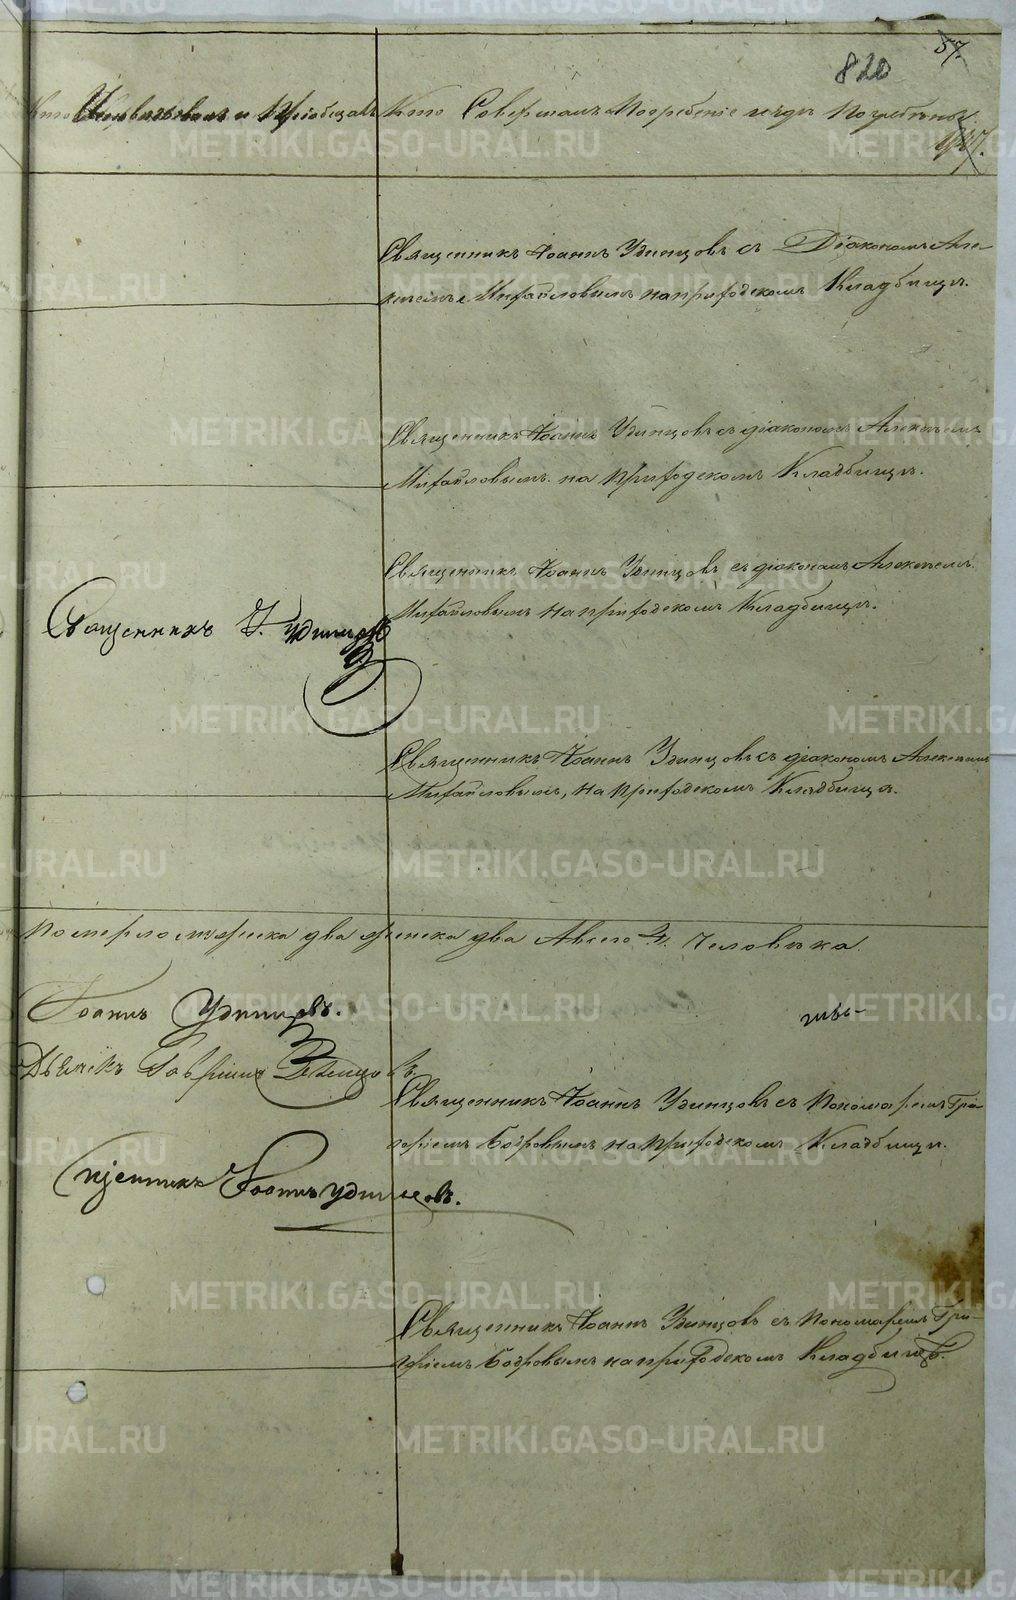 57.
820
Кто Исповѣдовалъ и Пріобщалъ
Кто Совершалъ Погребеніе и гдѣ Погребены.
Священникъ Іоаннъ Удинцовъ съ Діакономъ Але-
ксѣемъ Михайловымъ на приходскомъ Кладбищѣ.
Священникъ Іоаннъ Удинцовъ съ діакономъ Алексѣемъ
Михайловымъ на Приходскомъ Кладбищѣ.
Священникъ Іоаннъ Удинцовъ съ діакономъ Алексѣемъ
Михайловымъ на приходскомъ Кладбищѣ.
Священникъ І. Удинцовъ
Священникъ Іоаннъ Удинцовъ съ діакономъ Алексѣемъ
Михайловымъ, на Приходскомъ Кладбищѣ.
Померло мужеска два женска два А всего 4. Человѣка.
Іоаннъ Удинцовъ.
Дьячекъ Гавріилъ
Священникъ Іоаннъ Удинцовъ съ Пономаремъ Гри-
горіемъ Бобровымъ на Приходскомъ Кладбищѣ.
Священникъ Іоаннъ Удинцовъ.
Священникъ Іоаннъ Удинцовъ съ Пономаремъ Гри-
горіемъ Бобровымъ на приходскомъ Кладбищѣ.
METRIKI.GASO-URAL.RU